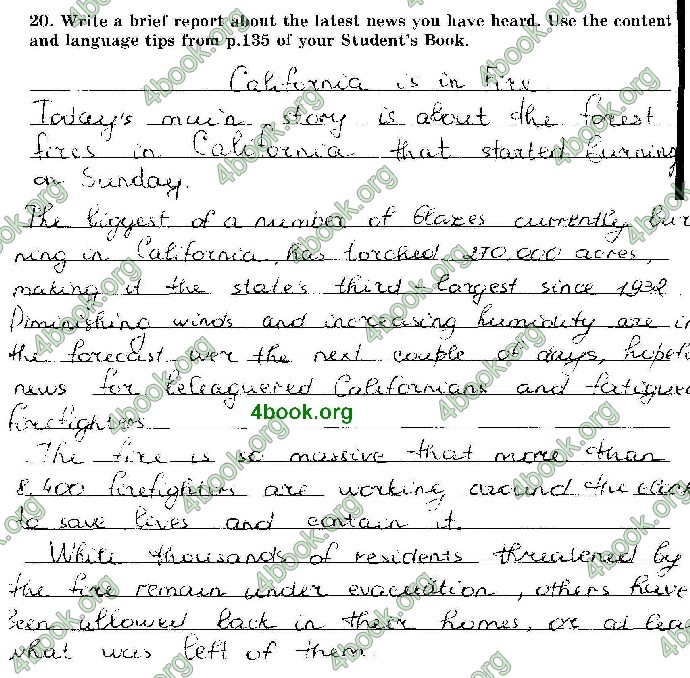 20. Write a brief report about the latest news you have heard. Use the content
and language tips from p.135 of your Student's Book.
California is in Fire
Today's main story is about the forest
fires in California that started burning
on Sunday.
The biggest of a number of blazes currently bur
ning in California, has torched 270,000 acres,
making it the state's third-largest since 1932.
Diminishing winds and increasing humidity are in
the forecast over the next couple of days, hopefu
news for beleaguered Californians and fatigue
firefighters
4book.org
The fire is so massive that more than
8,400 firefighters are working around the clock
to save lives and contain it.
While thousands of residents threatened by
the fire remain under evacuation, others have
been allowed back in their homes, or at lea
what was left of them